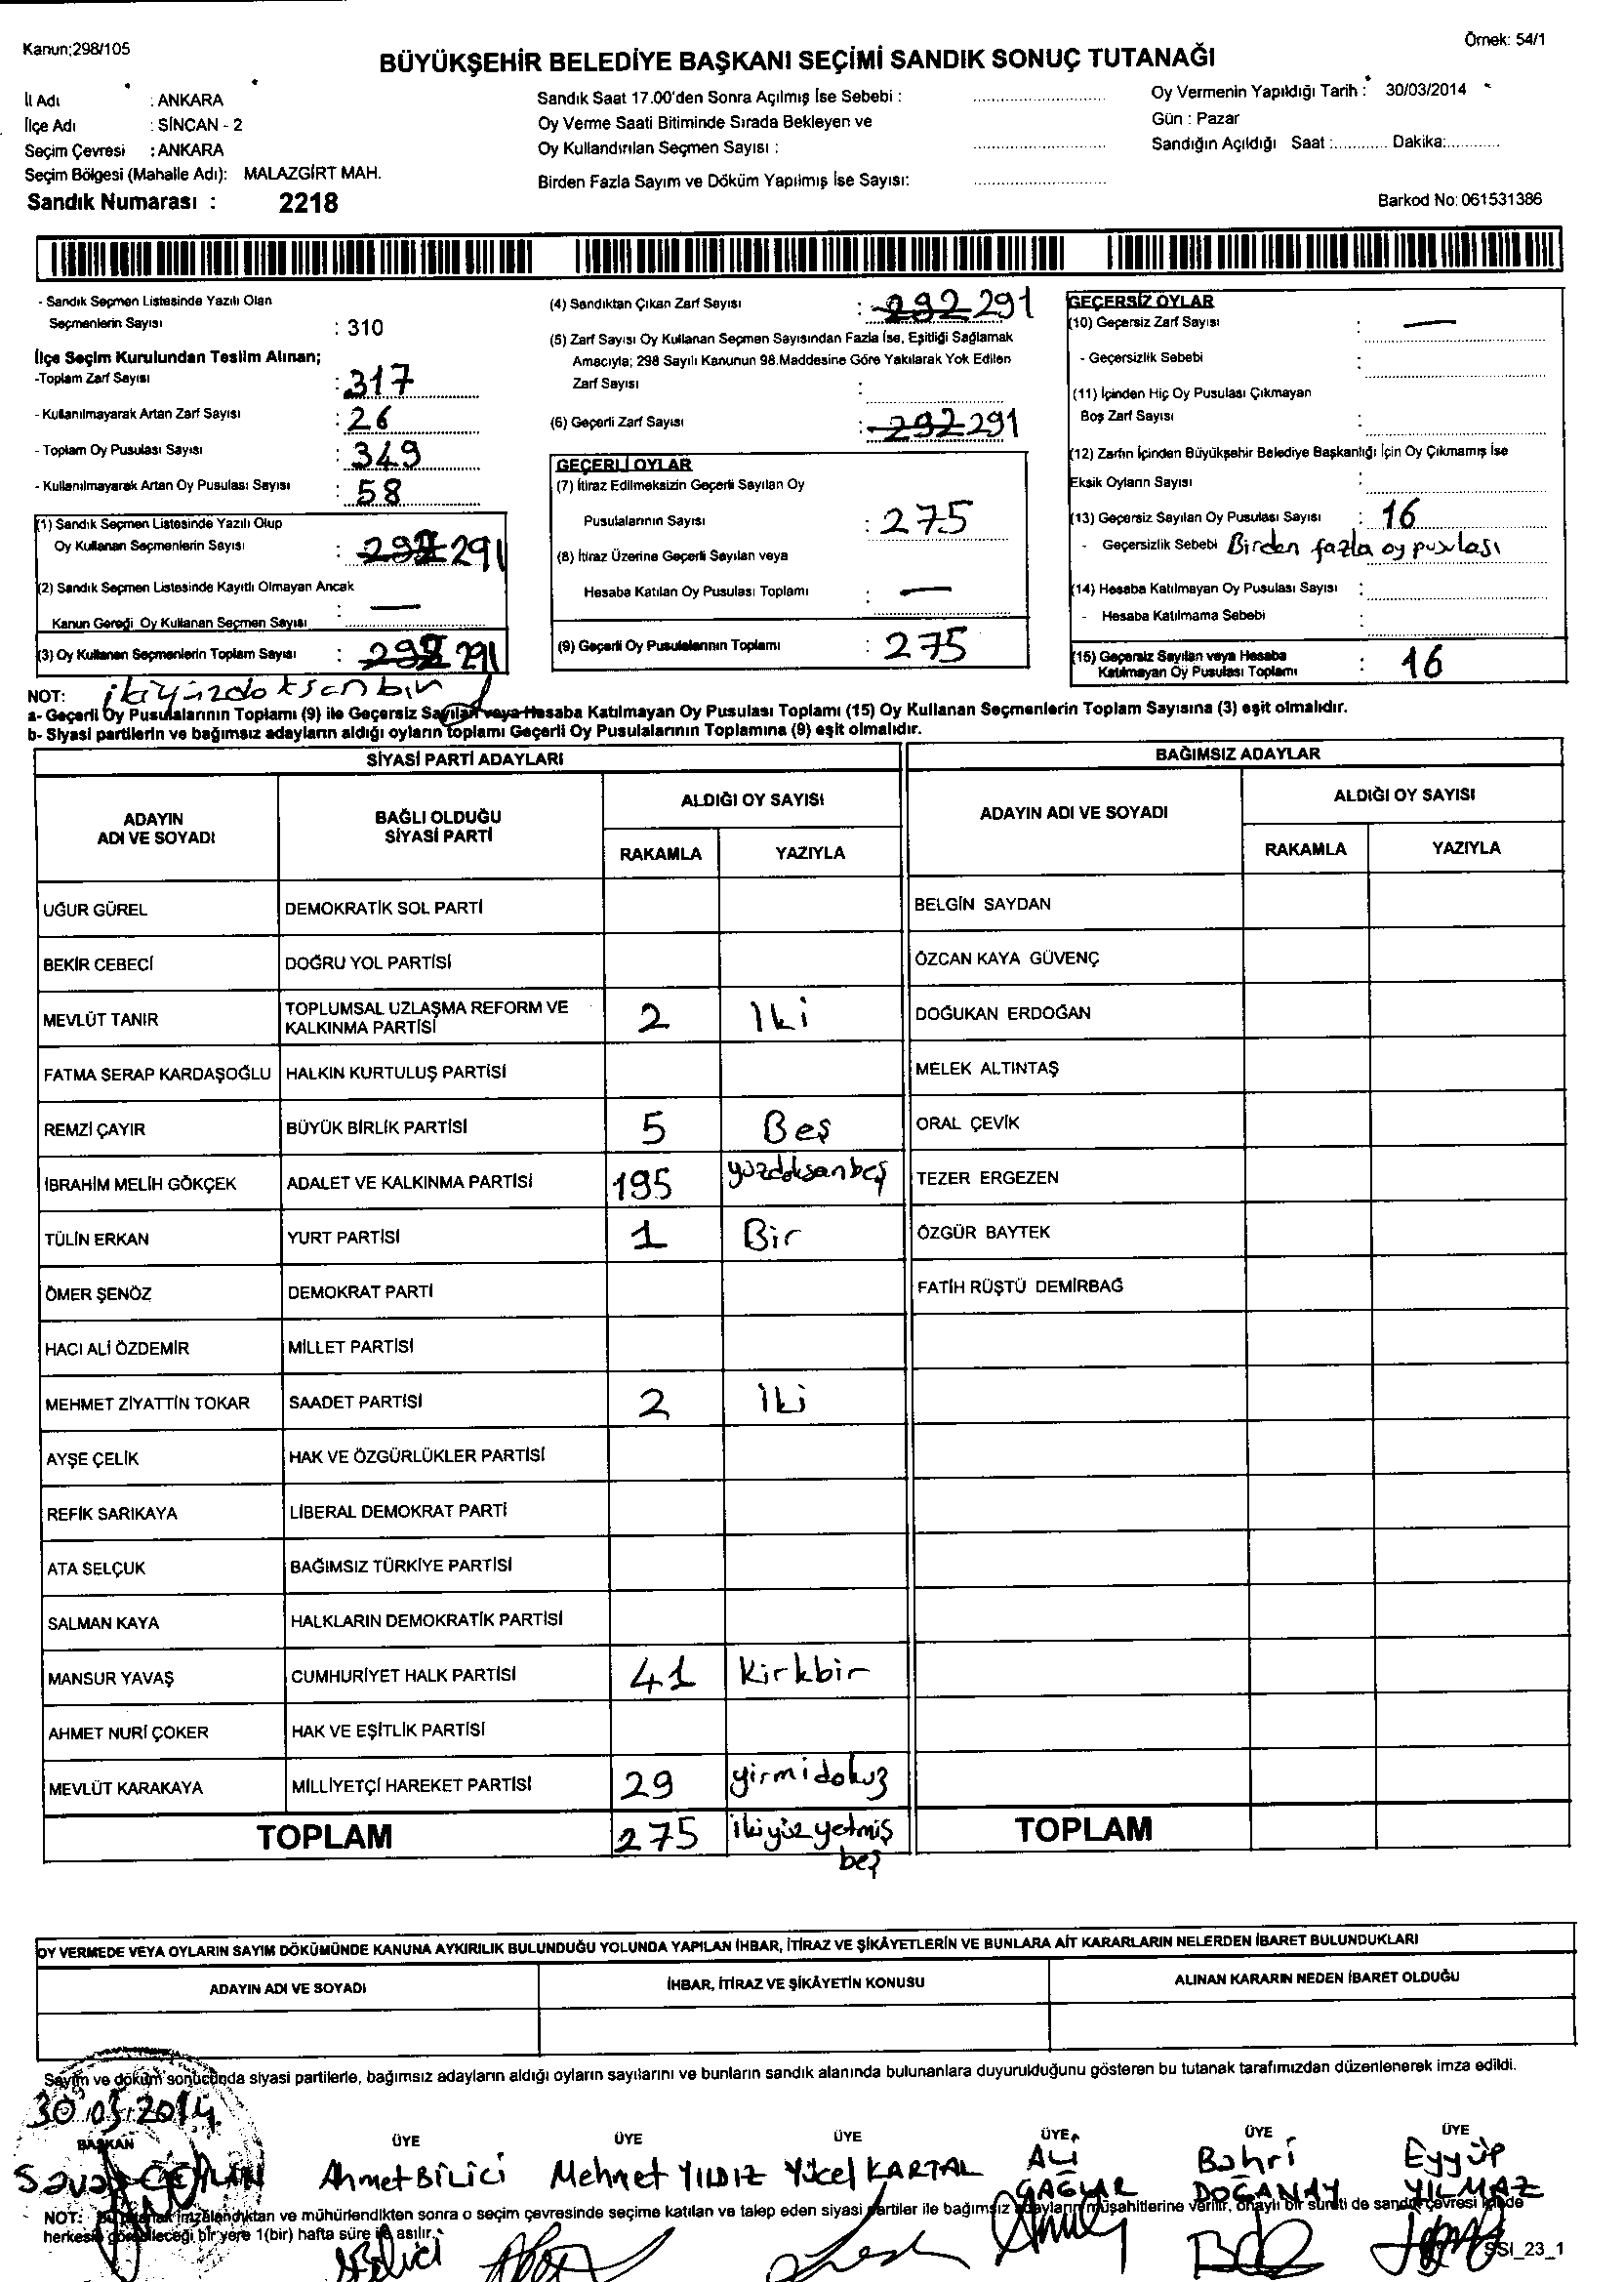 Kanun;298/105
Örnek: 54/1
BÜYÜKŞEHİR BELEDİYE BAŞKANI SEÇİMİ SANDIK SONUÇ TUTANAĞI
İl Adı : ANKARA
İlçe Adı : SİNCAN - 2
Seçim Çevresi : ANKARA
Seçim Bölgesi (Mahalle Adı): MALAZGİRT MAH.
Sandık Numarası : 2218
Sandık Saat 17.00'den Sonra Açılmış İse Sebebi :
Oy Verme Saati Bitiminde Sırada Bekleyen ve
Oy Kullandırılan Seçmen Sayısı :
Birden Fazla Sayım ve Döküm Yapılmış İse Sayısı:
Oy Vermenin Yapıldığı Tarih : 30/03/2014
Gün : Pazar
Sandığın Açıldığı Saat :............ Dakika:...........
Barkod No: 061531386
- Sandık Seçmen Listesinde Yazılı Olan
Seçmenlerin Sayısı : 310
İlçe Seçim Kurulundan Teslim Alınan;
-Toplam Zarf Sayısı : 317
- Kullanılmayarak Artan Zarf Sayısı : 26
- Toplam Oy Pusulası Sayısı : 349
- Kullanılmayarak Artan Oy Pusulası Sayısı : 58
(1) Sandık Seçmen Listesinde Yazılı Olup
Oy Kullanan Seçmenlerin Sayısı : 291
(2) Sandık Seçmen Listesinde Kayıtlı Olmayan Ancak
Kanun Gereği Oy Kullanan Seçmen Sayısı : —
(3) Oy Kullanan Seçmenlerin Toplam Sayısı : 291
ikiyüzdoksanbir
(4) Sandıktan Çıkan Zarf Sayısı : 292 291
(5) Zarf Sayısı Oy Kullanan Seçmen Sayısından Fazla İse, Eşitliği Sağlamak
Amacıyla; 298 Sayılı Kanunun 98.Maddesine Göre Yakılarak Yok Edilen
Zarf Sayısı :
(6) Geçerli Zarf Sayısı : 292 291
GEÇERLİ OYLAR
(7) İtiraz Edilmeksizin Geçerli Sayılan Oy
Pusulalarının Sayısı : 275
(8) İtiraz Üzerine Geçerli Sayılan veya
Hesaba Katılan Oy Pusulası Toplamı : —
(9) Geçerli Oy Pusulalarının Toplamı : 275
GEÇERSİZ OYLAR
(10) Geçersiz Zarf Sayısı : —
- Geçersizlik Sebebi :
(11) İçinden Hiç Oy Pusulası Çıkmayan
Boş Zarf Sayısı :
(12) Zarfın İçinden Büyükşehir Belediye Başkanlığı İçin Oy Çıkmamış İse
Eksik Oyların Sayısı :
(13) Geçersiz Sayılan Oy Pusulası Sayısı : 16
- Geçersizlik Sebebi Birden fazla oy pusulası
(14) Hesaba Katılmayan Oy Pusulası Sayısı :
- Hesaba Katılmama Sebebi :
(15) Geçersiz Sayılan veya Hesaba
Katılmayan Oy Pusulası Toplamı : 16
NOT:
a- Geçerli Oy Pusulalarının Toplamı (9) ile Geçersiz Sayılan veya Hesaba Katılmayan Oy Pusulası Toplamı (15) Oy Kullanan Seçmenlerin Toplam Sayısına (3) eşit olmalıdır.
b- Siyasi partilerin ve bağımsız adayların aldığı oyların toplamı Geçerli Oy Pusulalarının Toplamına (9) eşit olmalıdır.
SİYASİ PARTİ ADAYLARI
ADAYIN ADI VE SOYADI
BAĞLI OLDUĞU SİYASİ PARTİ
ALDIĞI OY SAYISI
RAKAMLA YAZIYLA
UĞUR GÜREL DEMOKRATİK SOL PARTİ
BEKİR CEBECİ DOĞRU YOL PARTİSİ
MEVLÜT TANIR TOPLUMSAL UZLAŞMA REFORM VE KALKINMA PARTİSİ 2 İki
FATMA SERAP KARDAŞOĞLU HALKIN KURTULUŞ PARTİSİ
REMZİ ÇAYIR BÜYÜK BİRLİK PARTİSİ 5 Beş
İBRAHİM MELİH GÖKÇEK ADALET VE KALKINMA PARTİSİ 195 yüzdoksanbeş
TÜLİN ERKAN YURT PARTİSİ 1 Bir
ÖMER ŞENÖZ DEMOKRAT PARTİ
HACI ALİ ÖZDEMİR MİLLET PARTİSİ
MEHMET ZİYATTİN TOKAR SAADET PARTİSİ 2 İki
AYŞE ÇELİK HAK VE ÖZGÜRLÜKLER PARTİSİ
REFİK SARIKAYA LİBERAL DEMOKRAT PARTİ
ATA SELÇUK BAĞIMSIZ TÜRKİYE PARTİSİ
SALMAN KAYA HALKLARIN DEMOKRATİK PARTİSİ
MANSUR YAVAŞ CUMHURİYET HALK PARTİSİ 41 Kırkbir
AHMET NURİ ÇOKER HAK VE EŞİTLİK PARTİSİ
MEVLÜT KARAKAYA MİLLİYETÇİ HAREKET PARTİSİ 29 yirmidokuz
TOPLAM 275 ikiyüz yetmiş beş
BAĞIMSIZ ADAYLAR
ADAYIN ADI VE SOYADI
ALDIĞI OY SAYISI
RAKAMLA YAZIYLA
BELGİN SAYDAN
ÖZCAN KAYA GÜVENÇ
DOĞUKAN ERDOĞAN
MELEK ALTINTAŞ
ORAL ÇEVİK
TEZER ERGEZEN
ÖZGÜR BAYTEK
FATİH RÜŞTÜ DEMİRBAĞ
TOPLAM
OY VERMEDE VEYA OYLARIN SAYIM DÖKÜMÜNDE KANUNA AYKIRILIK BULUNDUĞU YOLUNDA YAPILAN İHBAR, İTİRAZ VE ŞİKÂYETLERİN VE BUNLARA AİT KARARLARIN NELERDEN İBARET BULUNDUKLARI
ADAYIN ADI VE SOYADI İHBAR, İTİRAZ VE ŞİKÂYETİN KONUSU ALINAN KARARIN NEDEN İBARET OLDUĞU
Sayım ve döküm sonucunda siyasi partilerle, bağımsız adayların aldığı oyların sayılarını ve bunların sandık alanında bulunanlara duyurulduğunu gösteren bu tutanak tarafımızdan düzenlenerek imza edildi.
30.03.2014
BAŞKAN ÜYE ÜYE ÜYE ÜYE ÜYE ÜYE
Savaş Ahmet BİLİCİ Mehmet YILDIZ Yücel KARTAL ALİ ÇAĞLAR Bahri DOĞANAY Eyyüp YILMAZ
NOT: imzalandıktan ve mühürlendikten sonra o seçim çevresinde seçime katılan ve talep eden siyasi partiler ile bağımsız adayların müşahitlerine verilir, onaylı bir sureti de sandık çevresi içinde
herkesin görebileceği bir yere 1(bir) hafta süre ile asılır.
SSI_23_1